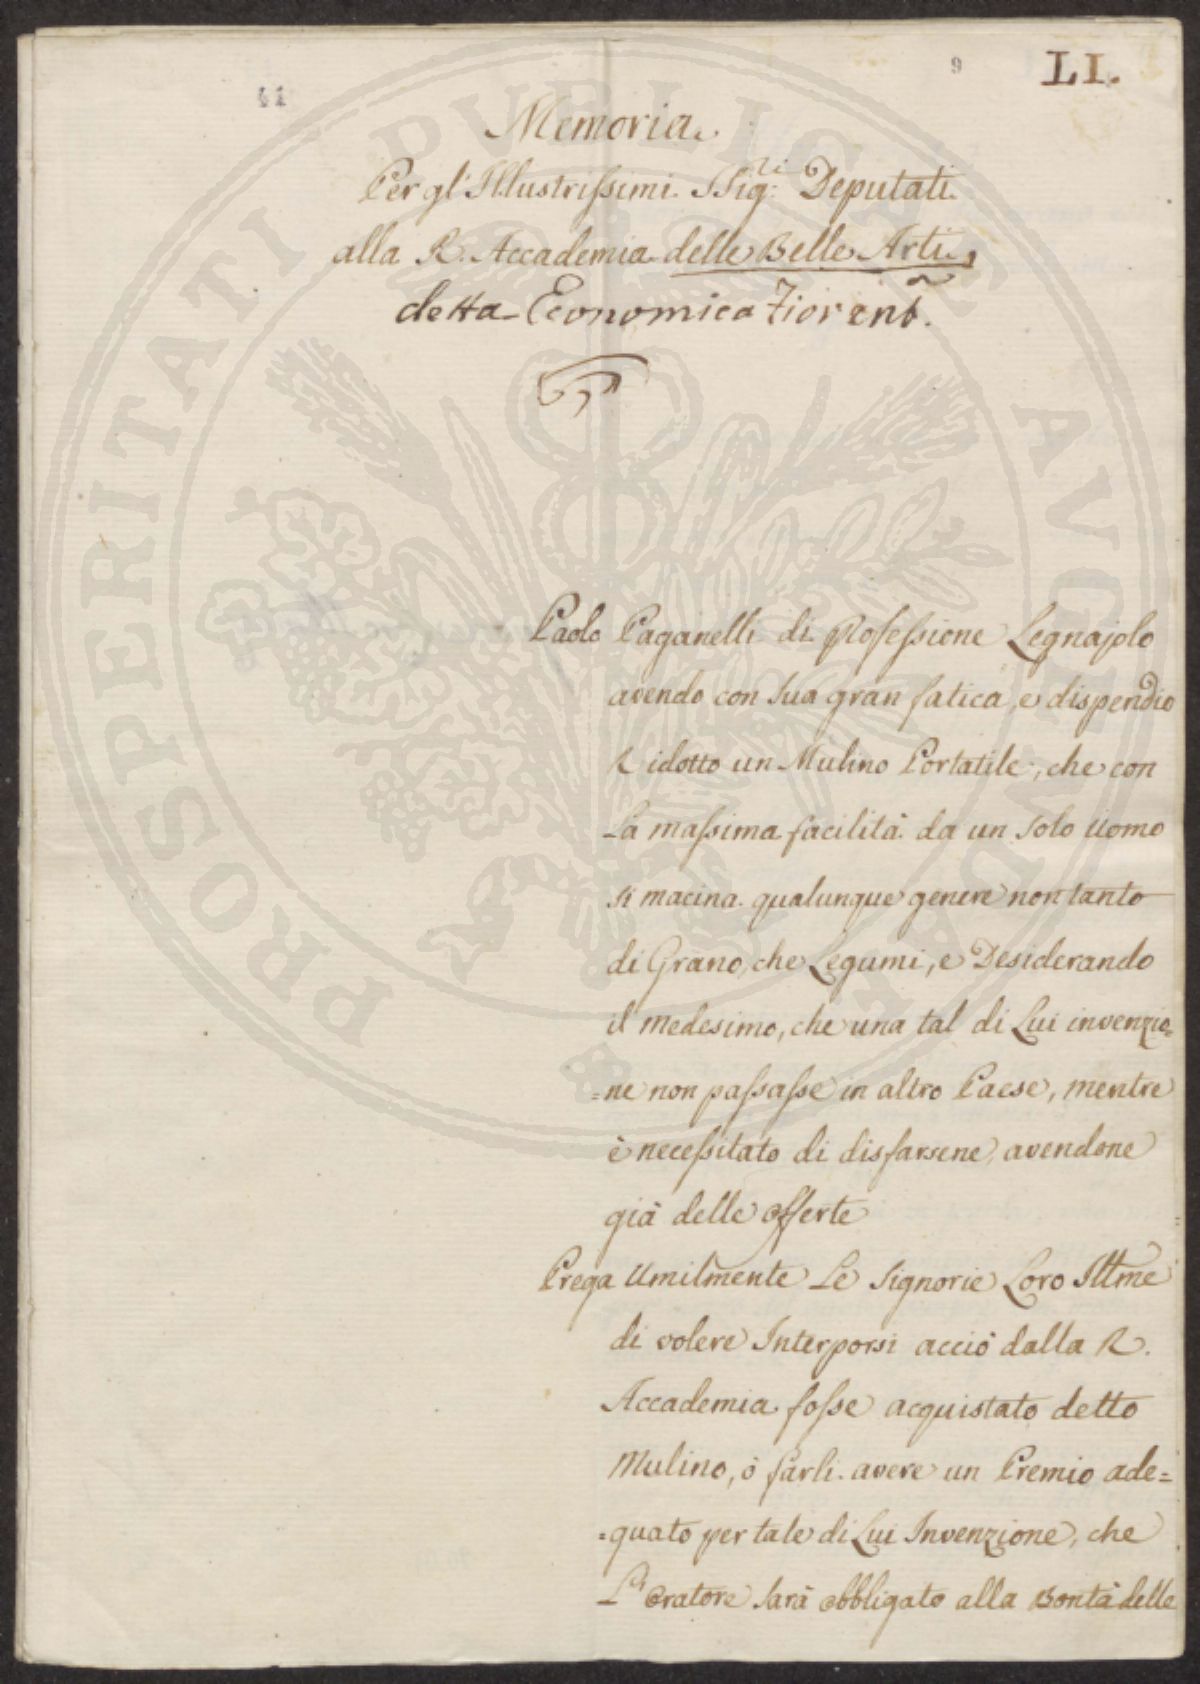 9
LI.
41
Memoria
Per gl' Illustrissimi SSig:ri Deputati
alla R. Accademia delle Belle Arti,
detta Economica Fiorent.
Paolo Paganelli di Professione Legnajolo
avendo con sua gran fatica, e dispendio
Ridotto un Mulino Portatile, che con
La massima facilità da un solo uomo
si macina qualunque genere non tanto
di Grano, che Legumi, e Desiderando
il medesimo, che una tal di Lui invenzio=
=ne non passasse in altro Paese, mentre
è necessitato di disfarsene, avendone
già delle offerte
Prega Umilmente Le Signorie Loro Illme
di volere Interporsi acciò dalla R.
Accademia fosse acquistato detto
Mulino, ò farli avere un Premio ade=
=quato per tale di Lui Invenzione, che
L'Oratore sarà obbligato alla Bontà delle
PROSPERITATI PVBLICAE AVGENDAE